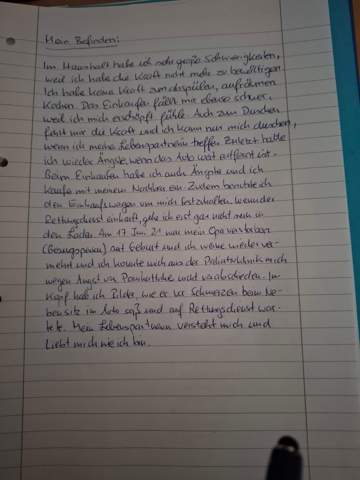 Mein Befinden:
Im Haushalt habe ich sehr große Schwierigkeiten,
weil ich habe die Kraft nicht mehr zu bewältigen.
Ich habe keine Kraft zum abspülen, aufräumen
Kochen. Das Einkaufen fällt mir ebenso schwer,
weil ich mich erschöpft fühle. Auch zum Duschen
fehlt mir die Kraft und ich kann nur mich duschen,
wenn ich meine Lebenspartnerin treffe. Zuletzt hatte
ich wieder Ängste, wenn das Auto weit entfernt ist.
Beim Einkaufen habe ich auch Ängste und ich
kaufe mit meinem Nachbar ein. Zudem benutze ich
den Einkaufswagen um mich festzuhalten. wenn der
Rettungsdienst einkauft, gehe ich erst gar nicht rein in
den Laden. Am 17 Juni 21 war mein Opa verstorben
(Bezugsperson) auf Geburt und ich weine wieder ver-
mehrt und ich konnte mich aus der Palliativklinik mich
wegen Angst vor Panikattacke nicht verabschieden. Im
Kopf hab ich Bilder, wie er vor Schmerzen beim Ne-
bensitz im Auto saß und auf Rettungsdienst war-
tete. Mein Lebenspartnerin versteht mich und
Liebt mich wie ich bin.